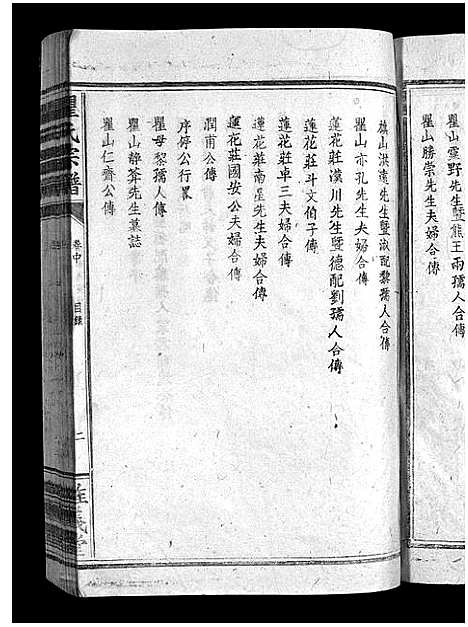 瞿山靈野先生暨熊王兩孺人合傳
瞿山勝崇先生夫婦合傳
瞿山洪遠先生暨淑配魏孺人合傳
瞿山亦孔先生夫婦合傳
蓮花莊漢川先生暨德配劉孺人合傳
蓮花莊斗文伯子傳
蓮花莊卓三夫婦合傳
蓮花莊南星先生夫婦合傳
蓮花莊國安公夫婦合傳
潤甫公傳
序停公行畧
瞿母黎孺人傳
瞿山靜莽先生墓誌
瞿山仁齋公傳
瞿氏宗譜
卷中
目錄
二